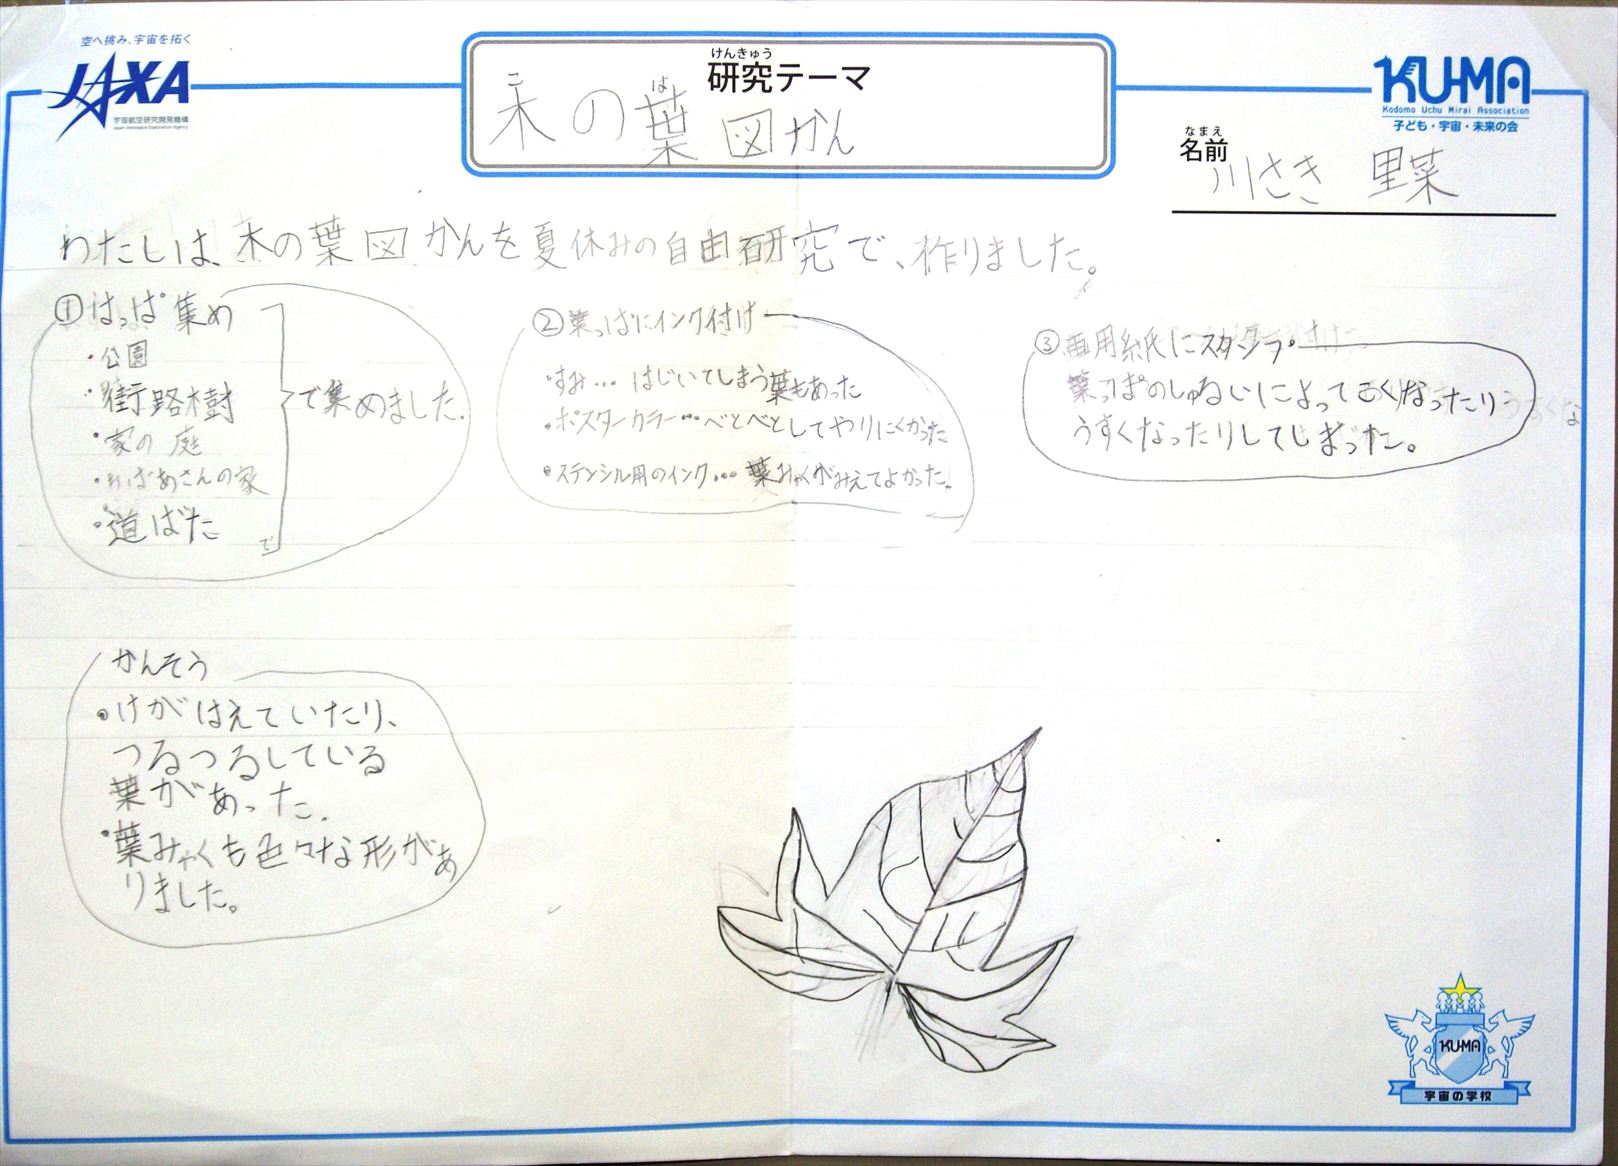 空へ挑み、宇宙を拓く
JAXA
宇宙航空研究開発機構
Japan Aerospace Exploration Agency
けんきゅう
研究テーマ
こ は
木の葉図かん
KU-MA
Kodomo Uchu Mirai Association
子ども・宇宙・未来の会
なまえ
名前
川さき 里菜
わたしは、木の葉図かんを夏休みの自由研究で、作りました。
①はっぱ集め
・公園
・街路樹
・家の庭
・おばあさんの家
・道ばた
で
で集めました。
②葉っぱにインク付け
・すみ…はじいてしまう葉もあった
・ポスターカラー…べとべとしてやりにくかった
・ステンシル用のインク…葉みゃくがみえてよかった。
③画用紙にスタンプ
葉っぱのしゅるいによってこくなったり
うすくなったりしてしまった。
かんそう
・けがはえていたり、
つるつるしている
葉があった。
・葉みゃくも色々な形があ
りました。
KU-MA
宇宙の学校